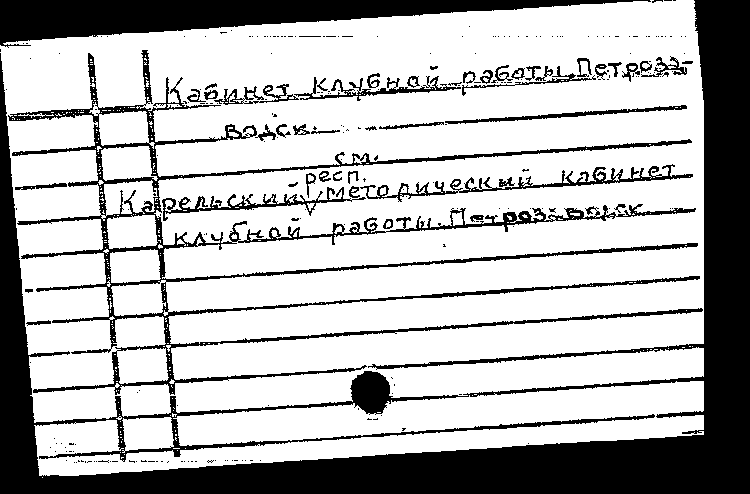 Кабинет клубной работы. Петроза-
водск.
см.
респ.
Карельский методический кабинет
клубной работы. Петрозаводск